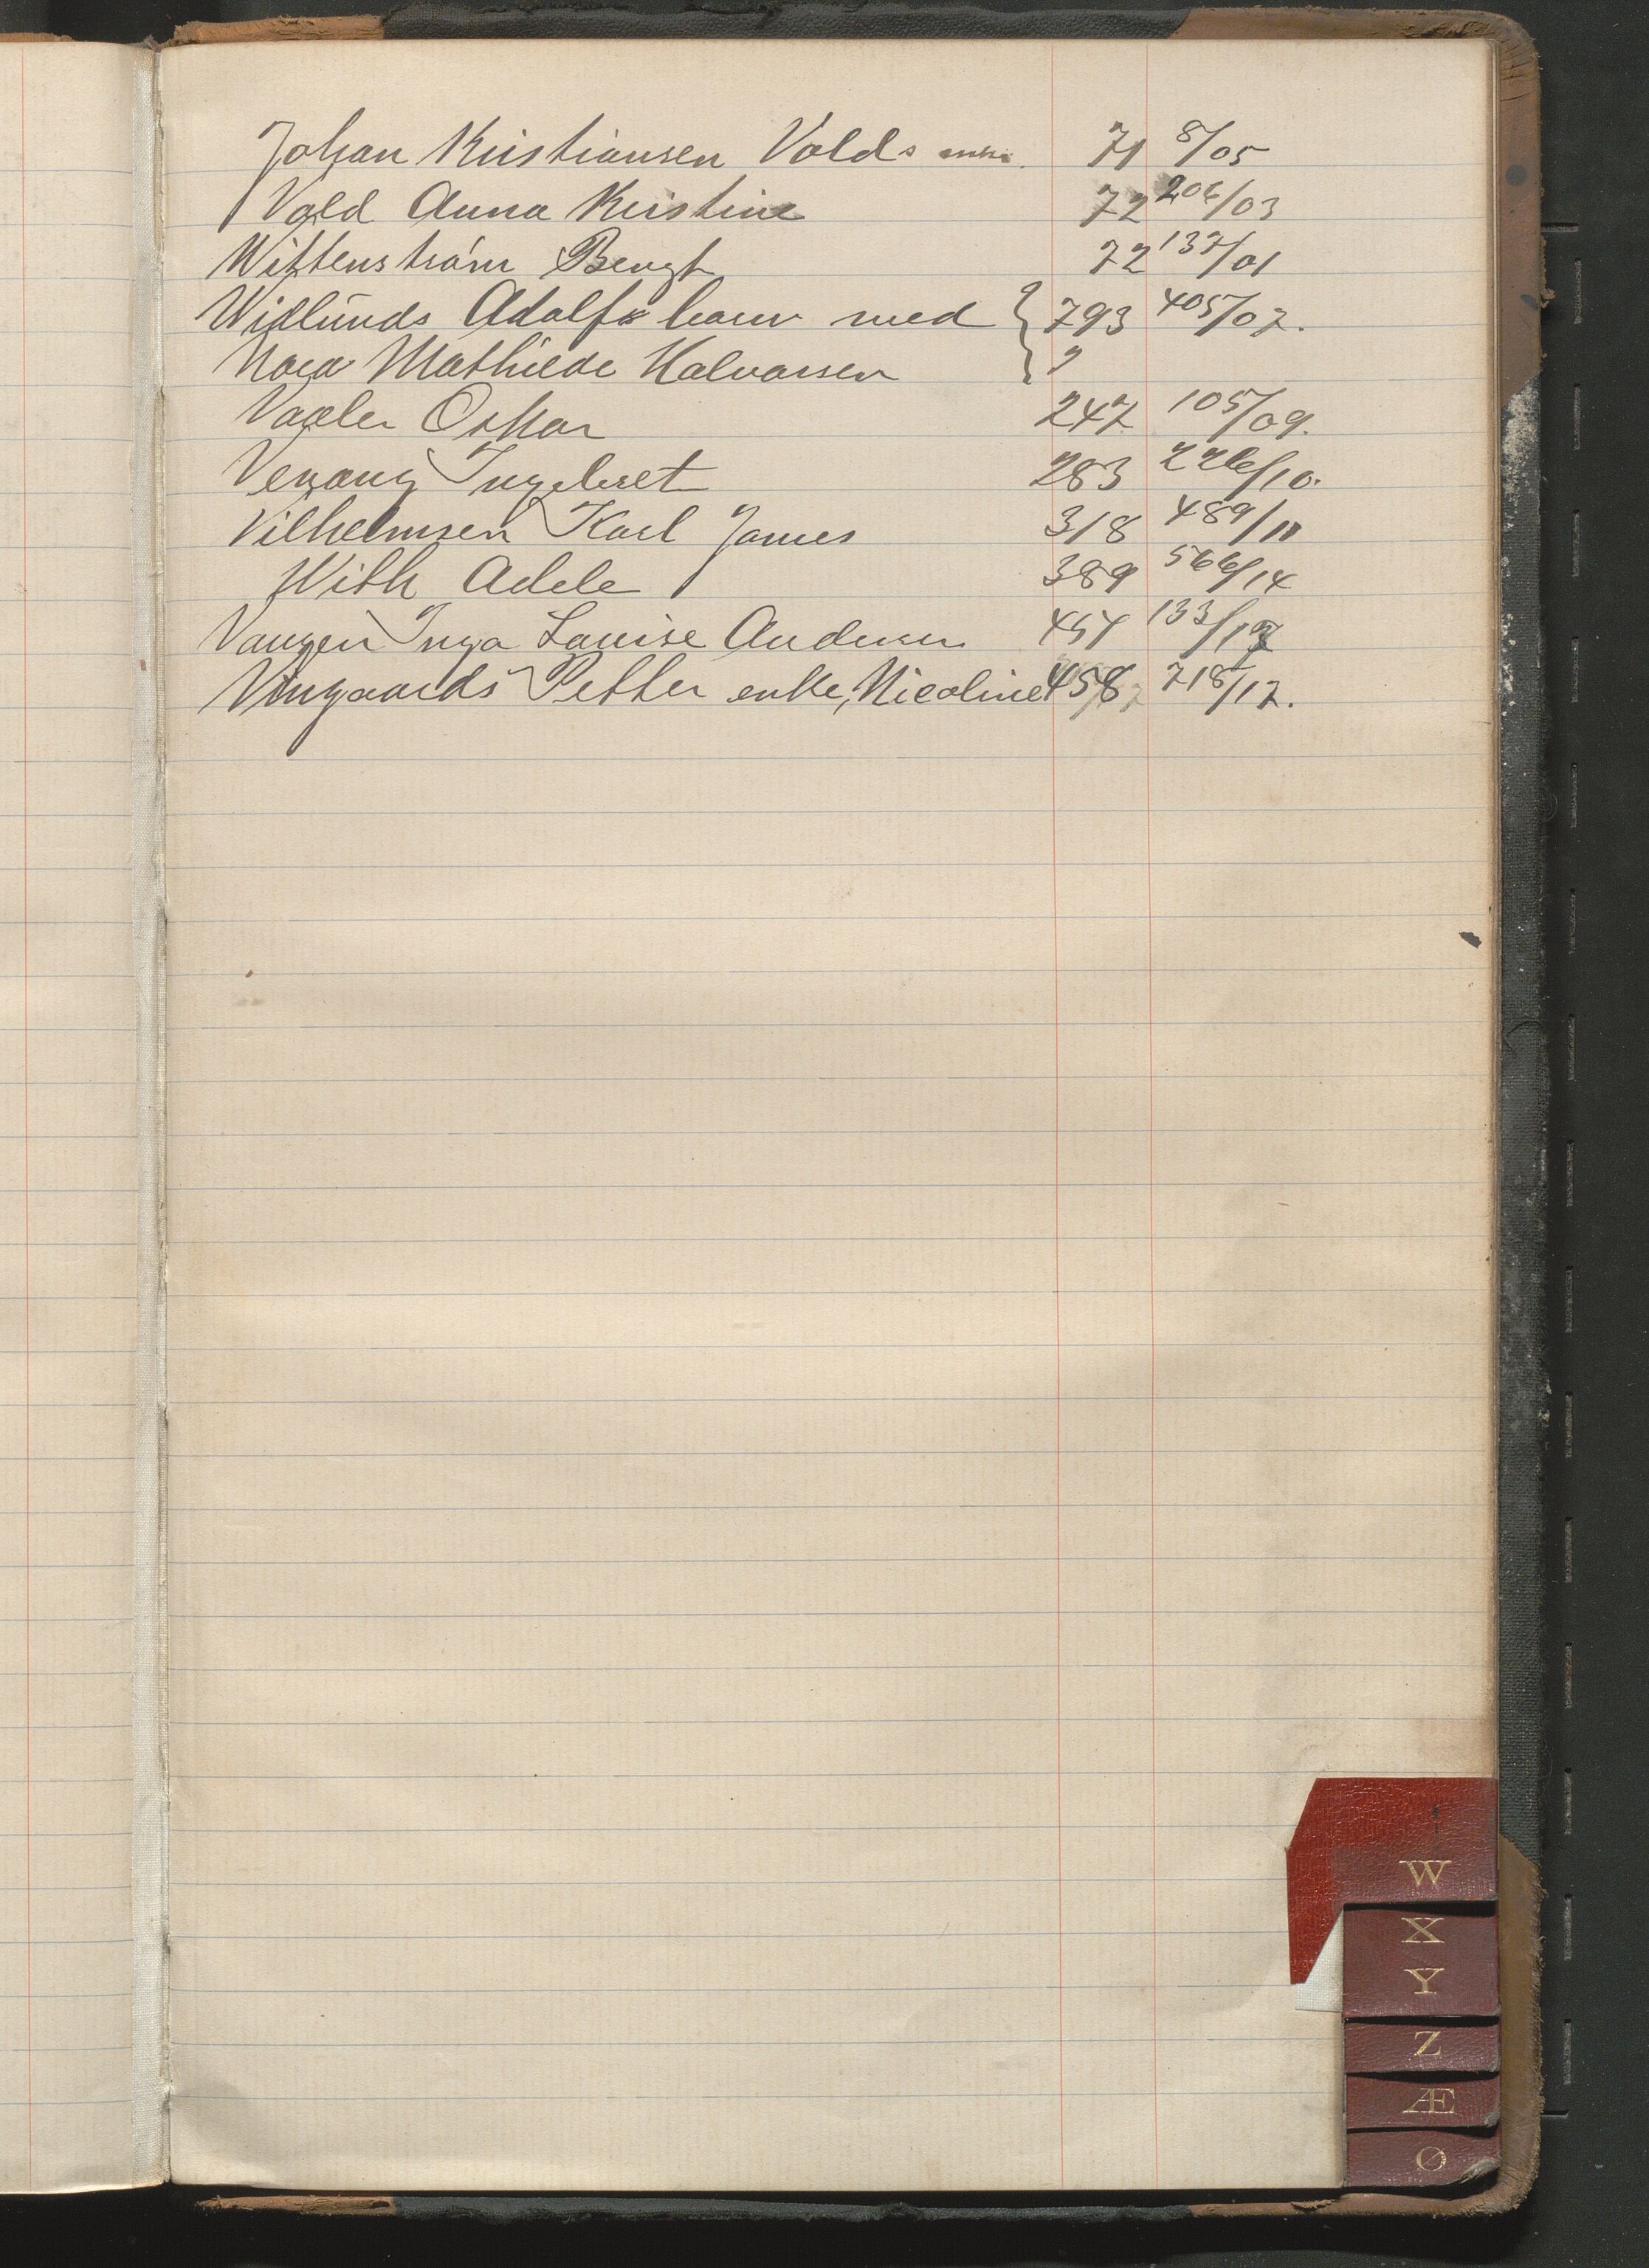 Johan Kristiansen Volds enke. 71 8/05
Vold Anna Kristine 72 206/03
Wittenstrøm Bengt 72 137/01
Widlunds Adolfs barn med } 793 405/07.
Nora Mathilde Halvorsen }
Vaaler Oskar 247 105/09.
Vevang Ingebret 283 226/10.
Vilhelmsen Karl James 318 489/11
With Adele 389 566/14
Vangen Inga Louise Andersen 454 133/17
Vingaards Petter enke, Nicoline 458 718/17.
W
X
Y
Z
Æ
Ø